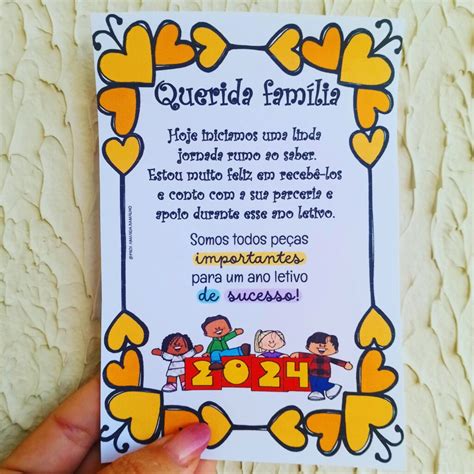 Querida família
Hoje iniciamos uma linda
jornada rumo ao saber.
Estou muito feliz em recebê-los
e conto com a sua parceria e
apoio durante esse ano letivo.
Somos todos peças
importantes
para um ano letivo
de sucesso!
2024